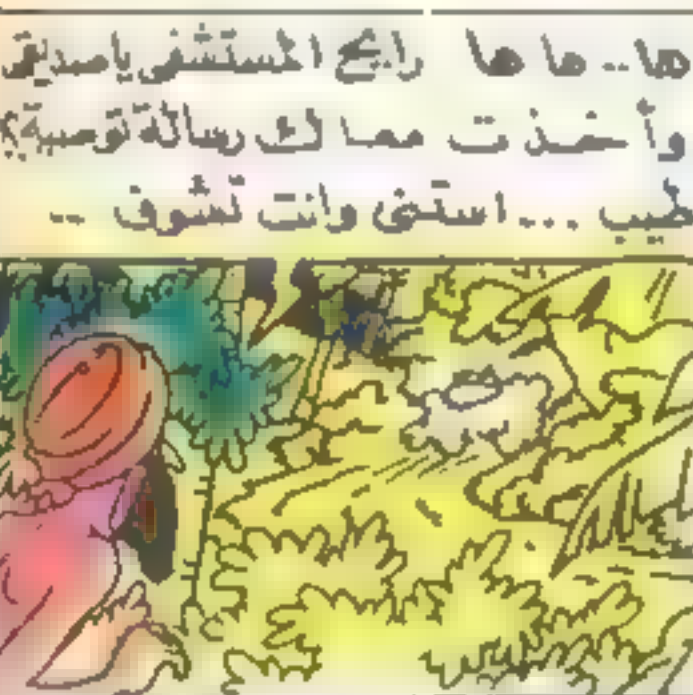 ها.. ها ها رايح المستشفى ياصديقى
وأخذت معاك رسالة توصية؟
طيب ... استنى وانت تشوف ..